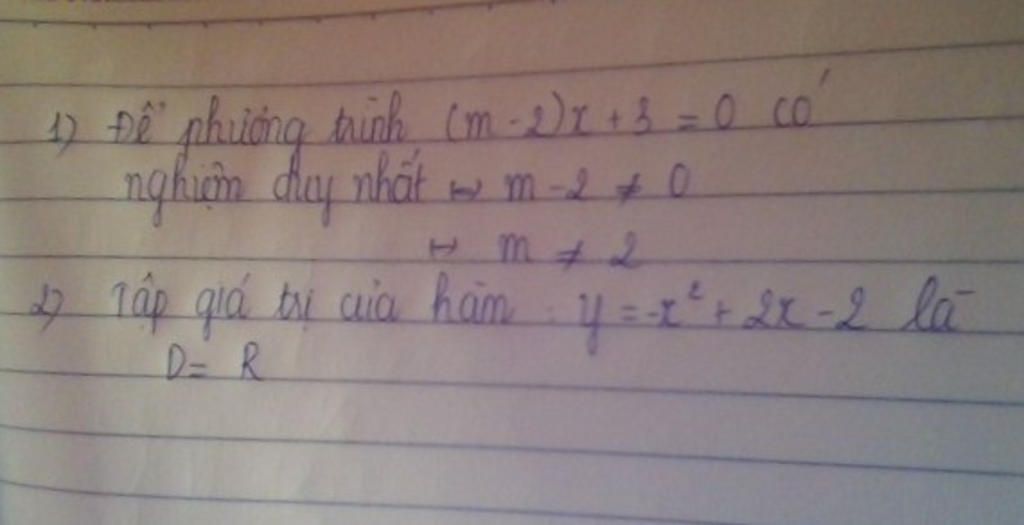 1) Để phương trình (m-2)x+3 = 0 có
nghiệm duy nhất ↔ m-2 ≠ 0
↔ m ≠ 2
2) Tập giá trị của hàm : y = -x² + 2x - 2 là
D = R